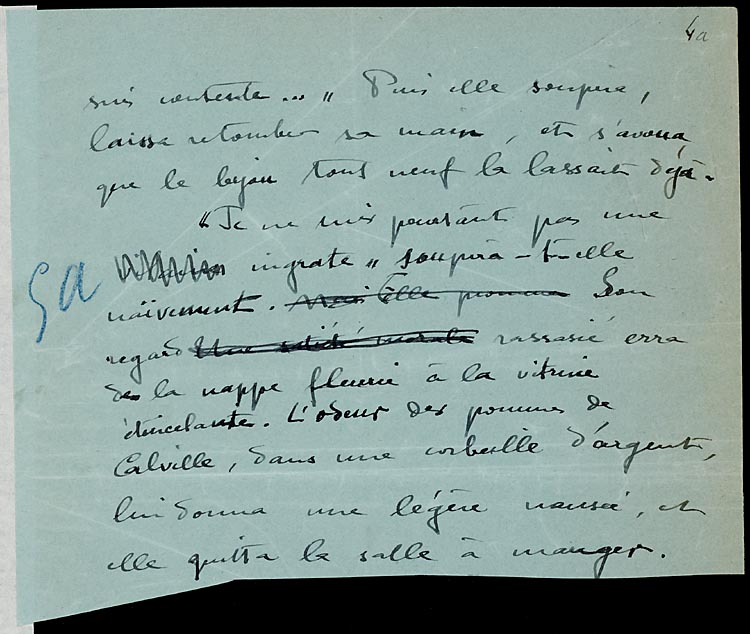 4a
suis contente... " Puis elle soupira,
laissa retomber sa main, et s'avoua
que le bijou tout neuf la lassait déjà.
"Je ne suis pourtant pas une
ingrate " soupira-t-elle
5a
naïvement. Mais Elle promena Son
regard Une satiété morale rassasié erra
de la nappe fleurie à la vitrine
étincelante. L'odeur des pommes de
Calville, dans une corbeille d'argent,
lui donna une légère nausée, et
elle quitta la salle à manger.